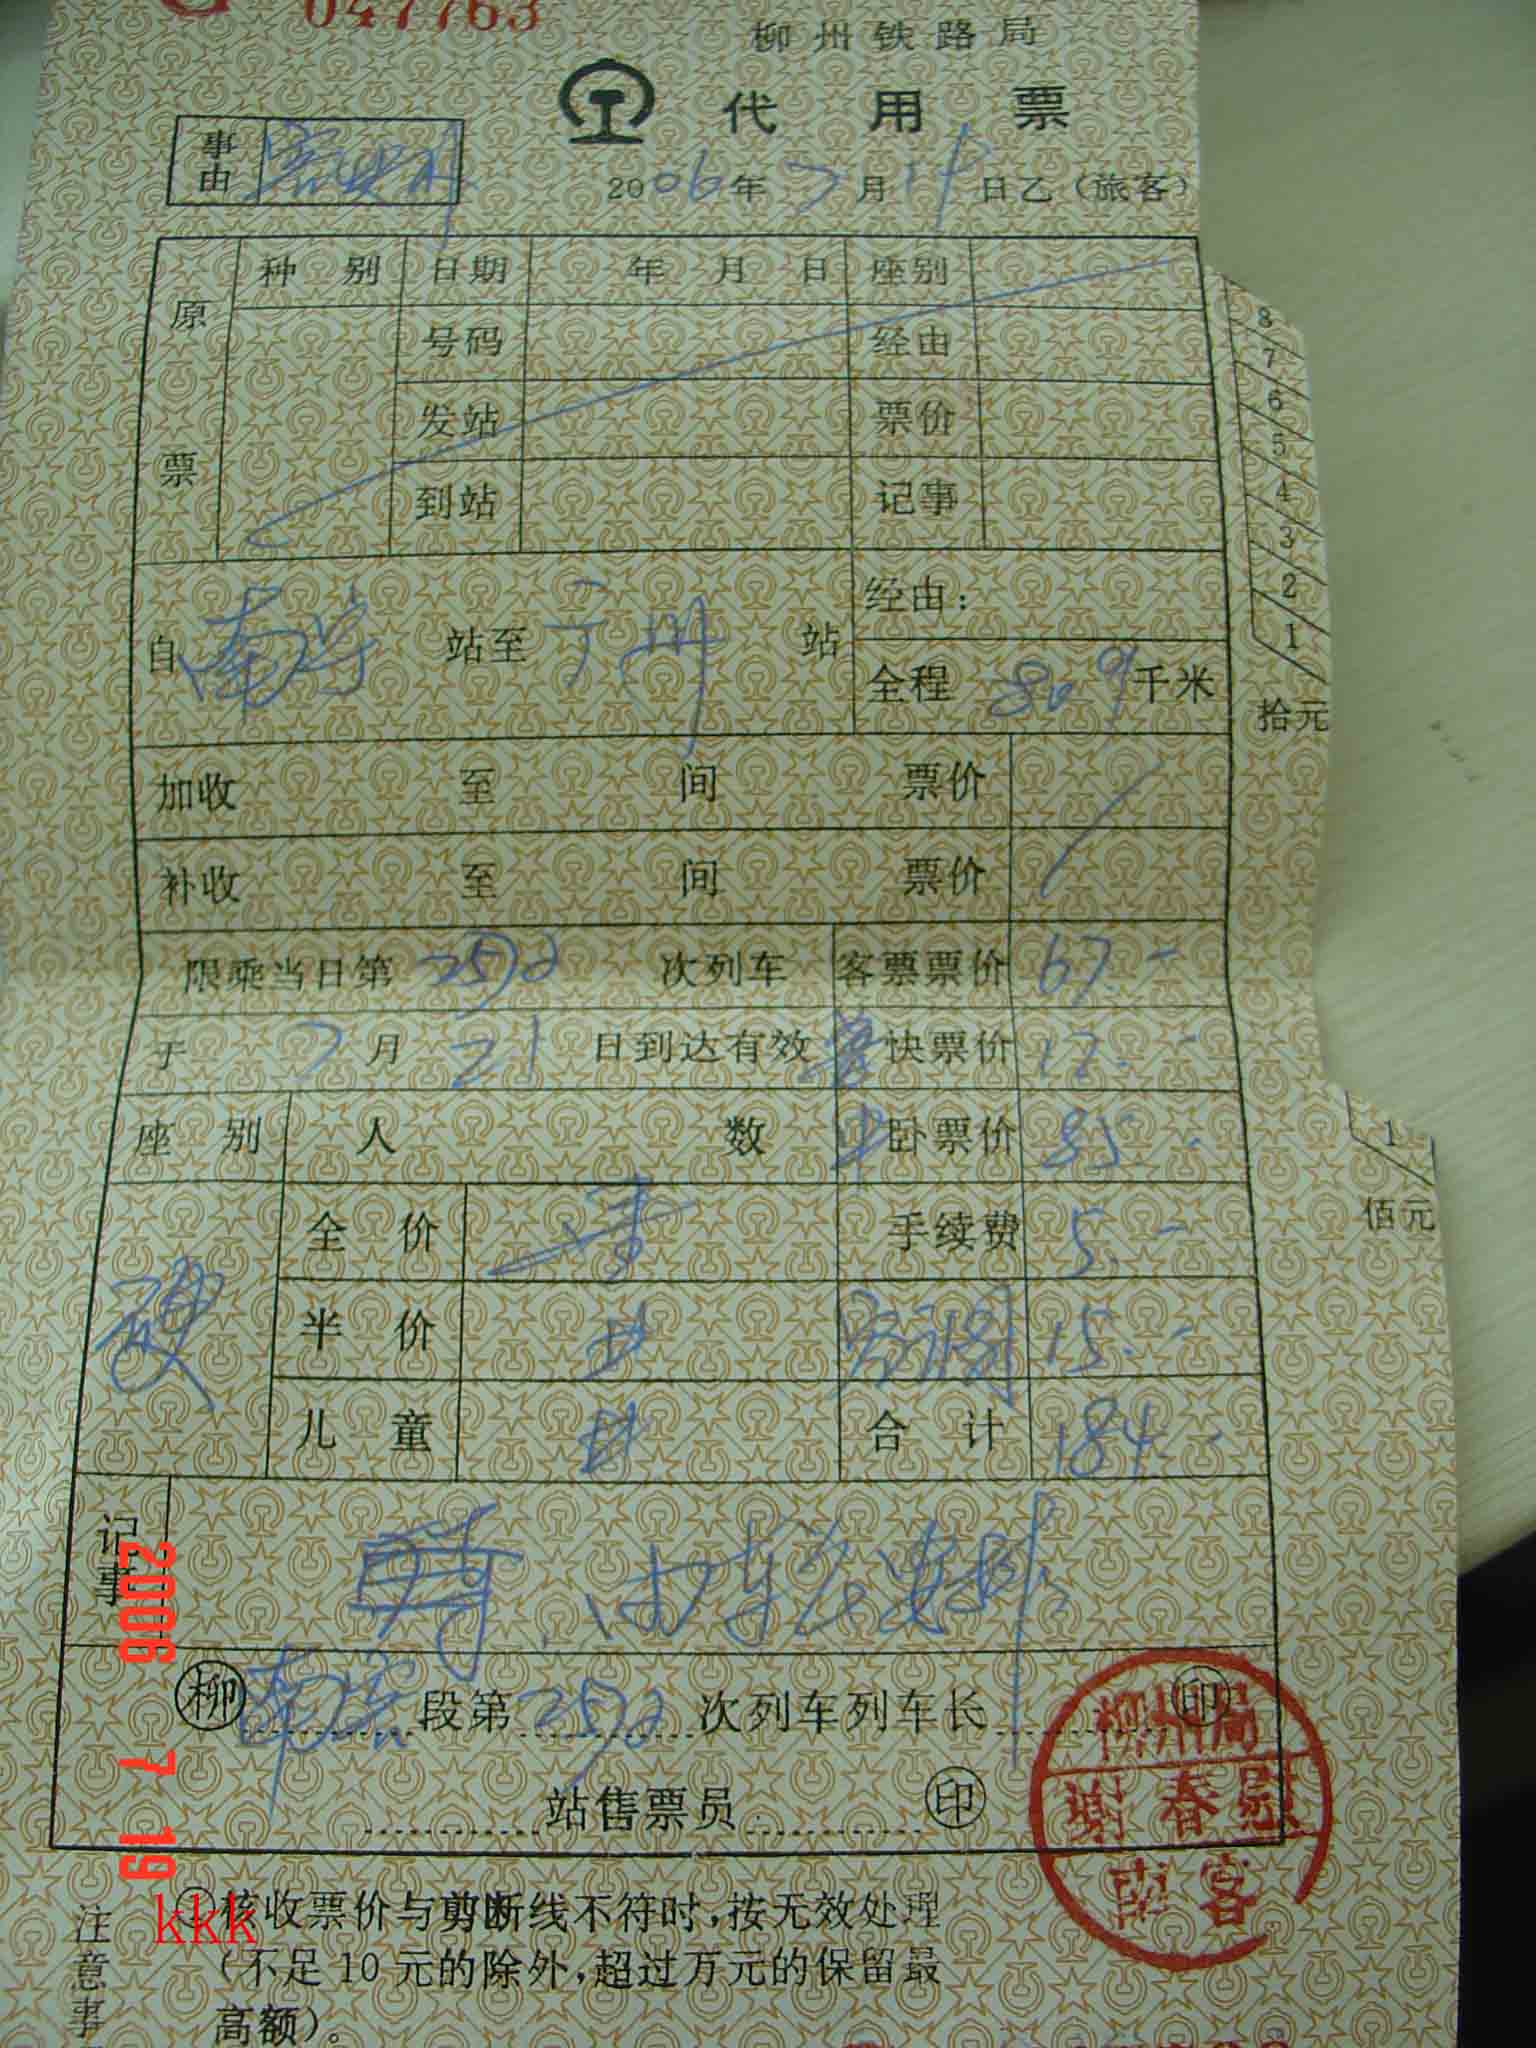 047763
柳州铁路局
代用票
事由
2006年7月19日乙（旅客）
原票 种别 日期 年 月 日 座别
号码 经由
发站 票价
到站 记事
8
7
6
5
4
3
2
1
拾元
自南宁站至广州站 经由：
全程 809 千米
加收 至 间 票价
补收 至 间 票价
限乘当日第2572次列车 客票票价 67.-
于7月21日到达有效 普快票价 12.-
座别 人数 卧票价 85.-
1
佰元
硬 全价 手续费 5.-
半价 空调 15.-
儿童 合计 184.-
记事
柳 南宁段第2572次列车列车长 印
站售票员 印
柳州局
谢春慰
南客
2006 7 19
kkk
注意事
①核收票价与剪断线不符时，按无效处理
（不足10元的除外，超过万元的保留最
高额）。